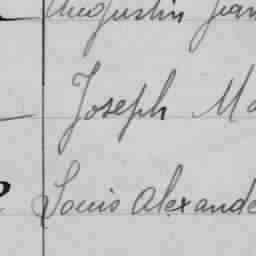 Augustin Jean
Joseph Ma
Louis Alexande